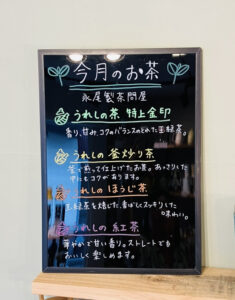 今月のお茶
永尾製茶問屋
うれしの茶 特上金印
香り、甘み、コクのバランスのとれた玉緑茶。
うれしの 釜炒り茶
釜で煎って仕上げたお茶。あっさりした
中にもコクがあります。
うれしの ほうじ茶
玉緑茶を焙じた、香ばしくスッキリした
味わい。
うれしの 紅茶
華やかで甘い香り。ストレートでも
おいしく楽しめます。